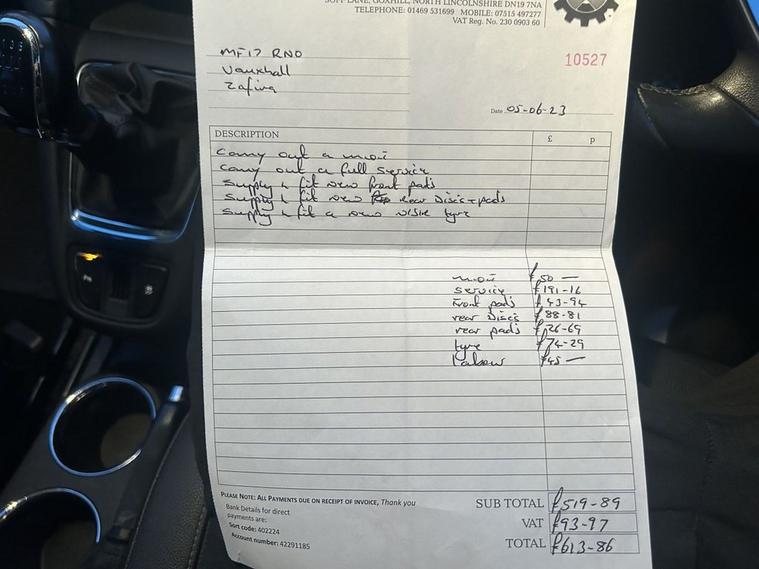 SOFF LANE, GOXHILL, NORTH LINCOLNSHIRE DN19 7NA
TELEPHONE: 01469 531699 MOBILE: 07515 497277
VAT Reg. No. 230 0903 60
MF17 RNO
Vauxhall
Zafira
10527
Date 05-06-23
DESCRIPTION £ p
Carry out a mot
Carry out a full service
Supply & fit new front pads
Supply & fit new rear Discs + pads
Supply & fit a new N/S/R tyre
mot £50 —
service £191-16
Front pads £43-94
rear Discs £88-81
rear pads £26-69
tyre £74-29
Labour £45 —
PLEASE NOTE: ALL PAYMENTS DUE ON RECEIPT OF INVOICE, Thank you
Bank Details for direct
payments are:
Sort code: 402224
Account number: 42291185
SUB TOTAL £519-89
VAT £93-97
TOTAL £613-86